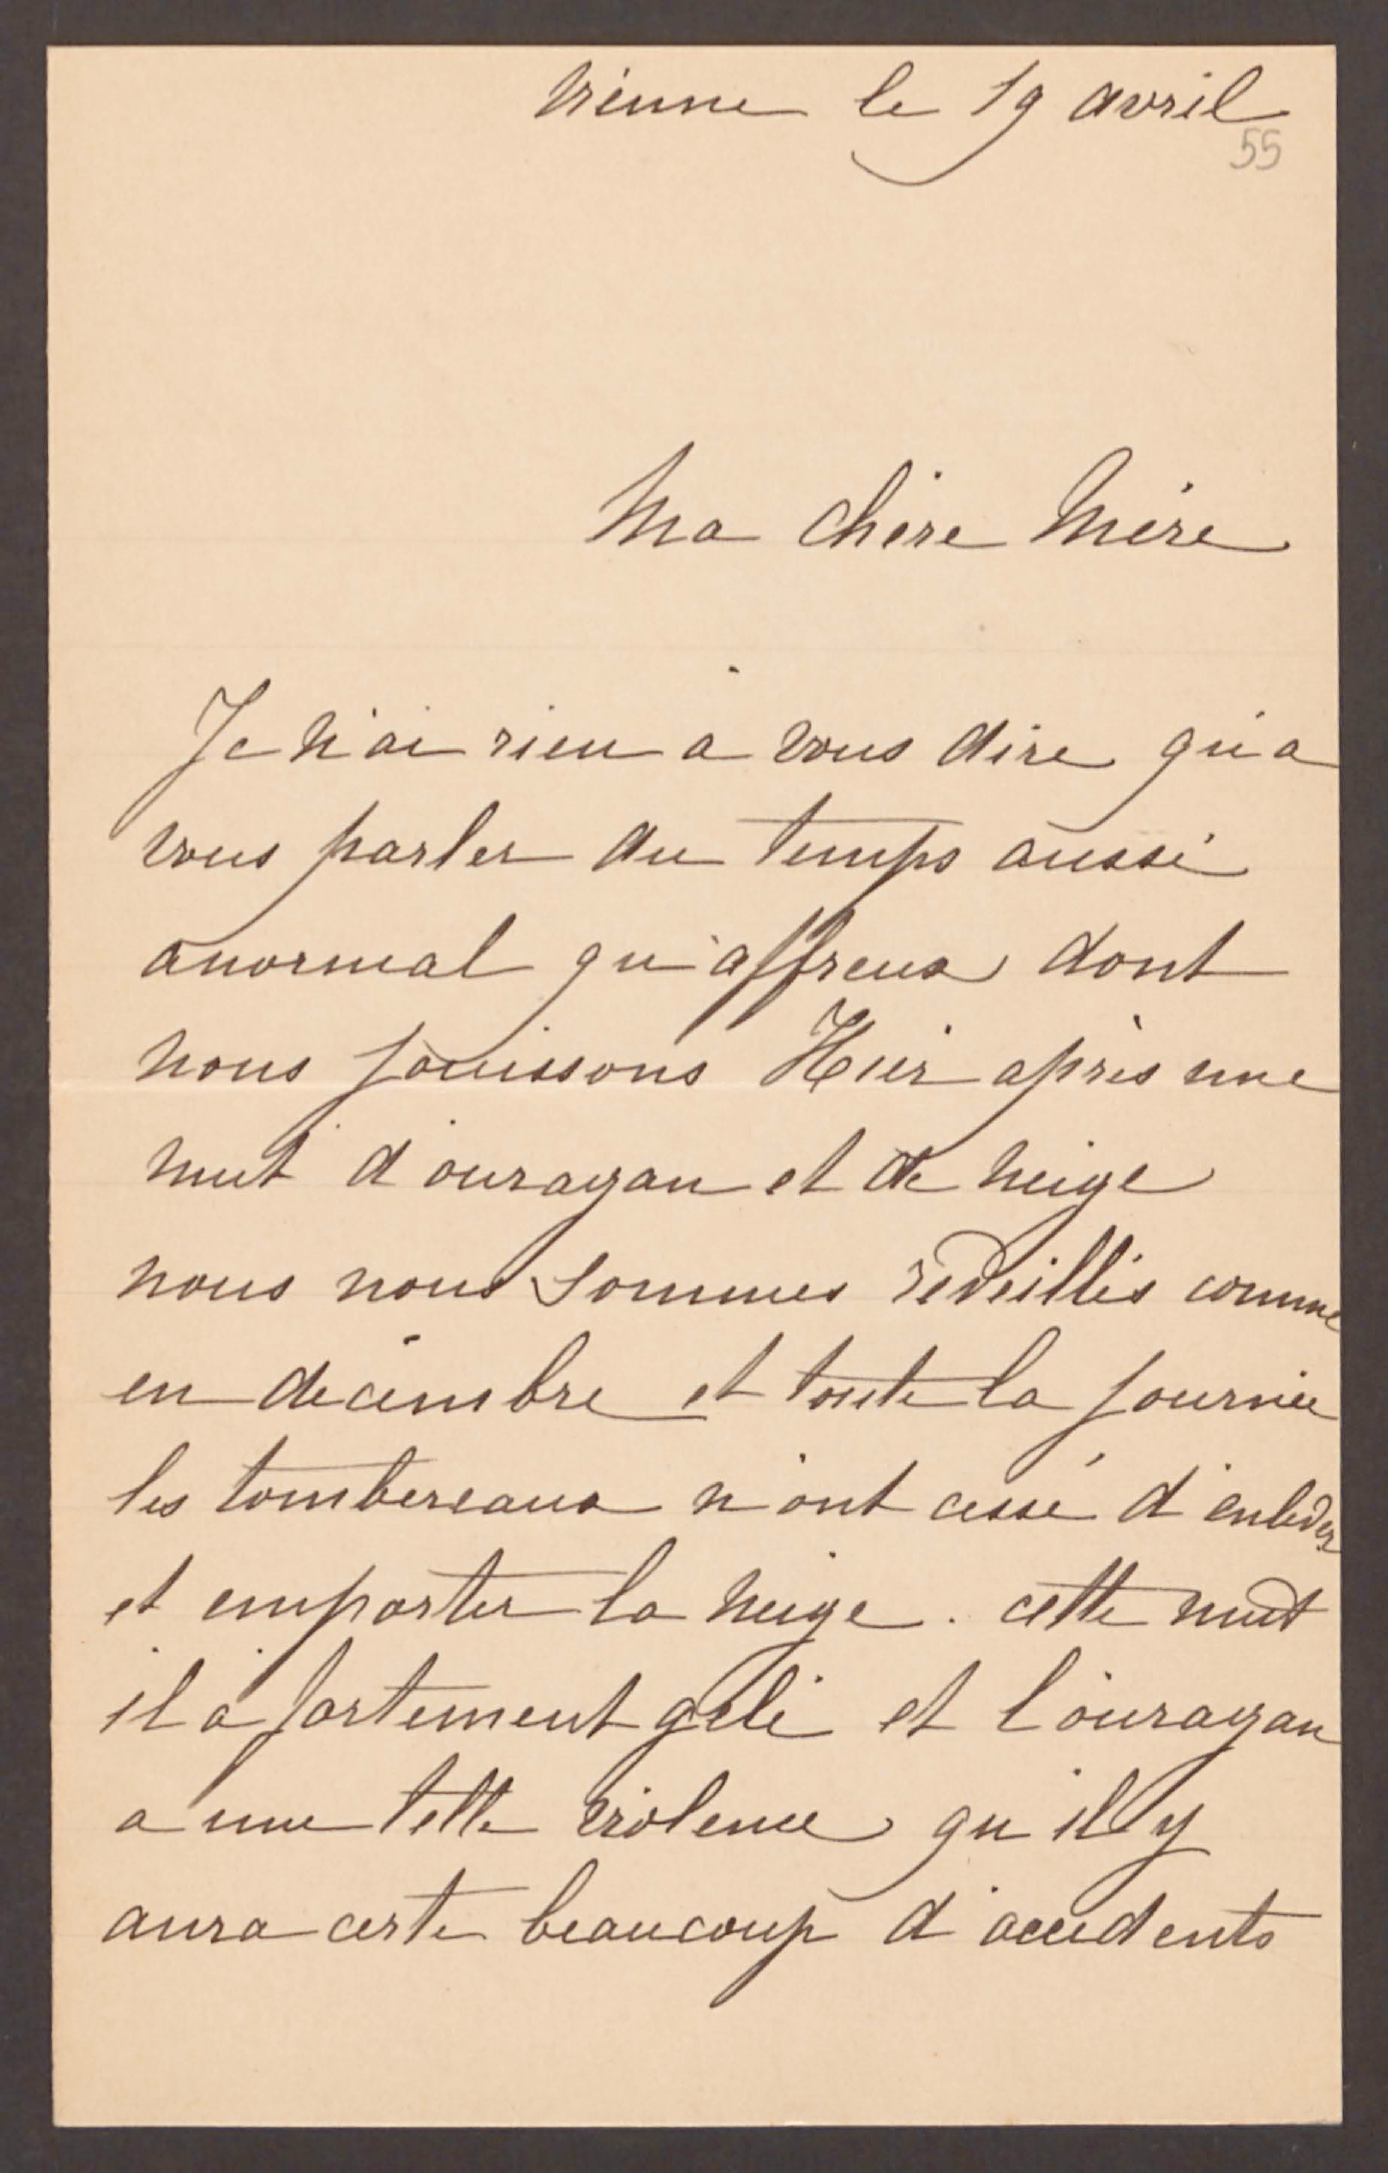 Vienne le 19 avril
55
Ma chère Mère
Je n'ai rien à vous dire qu'à
vous parler du temps aussi
anormal qu'affreux dont
nous jouissons Hier après une
nuit d'ouragan et de neige
nous nous sommes réveillés comme
en décembre et toute la journée
les tombereaux n'ont cessé d'enlever
et emporter la neige. cette nuit
il a fortement gelé et l'ouragan
a une telle violence qu'il y
aura certe beaucoup d'accidents